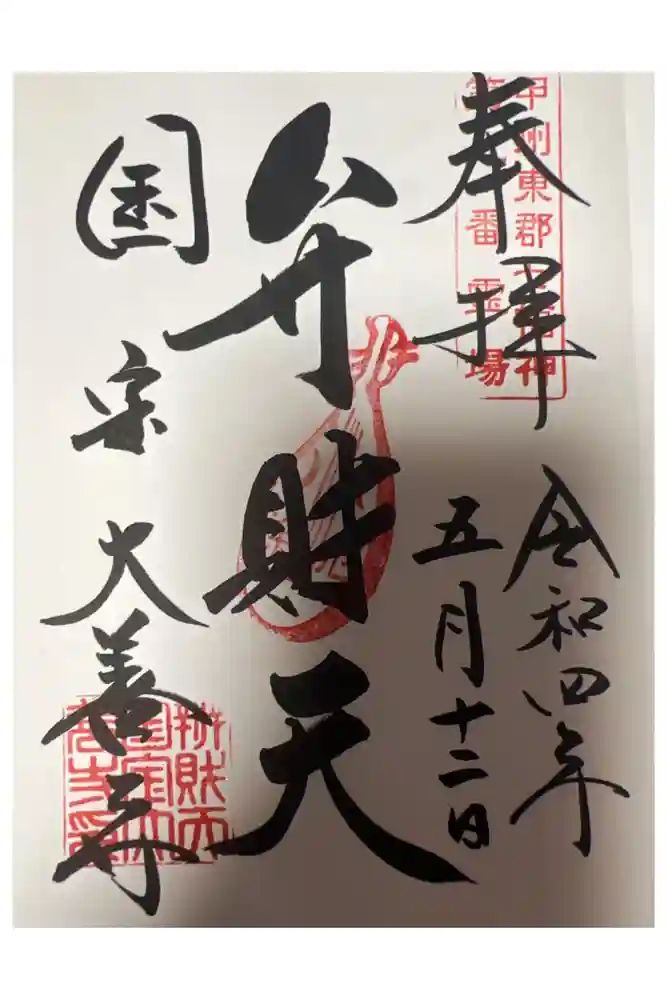 奉拝
甲州東郡七福神
第 番霊場
令和四年
五月十二日
弁財天
国宝 大善寺
辨財天
国宝大
善寺印